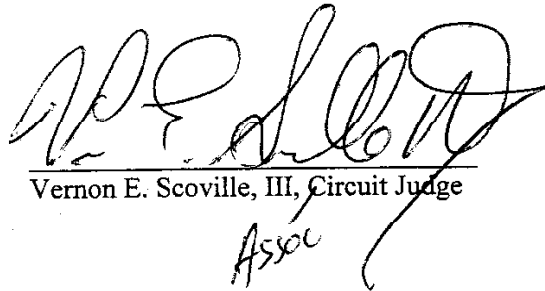 Vernon E. Scoville, III, Circuit Judge
Assoc